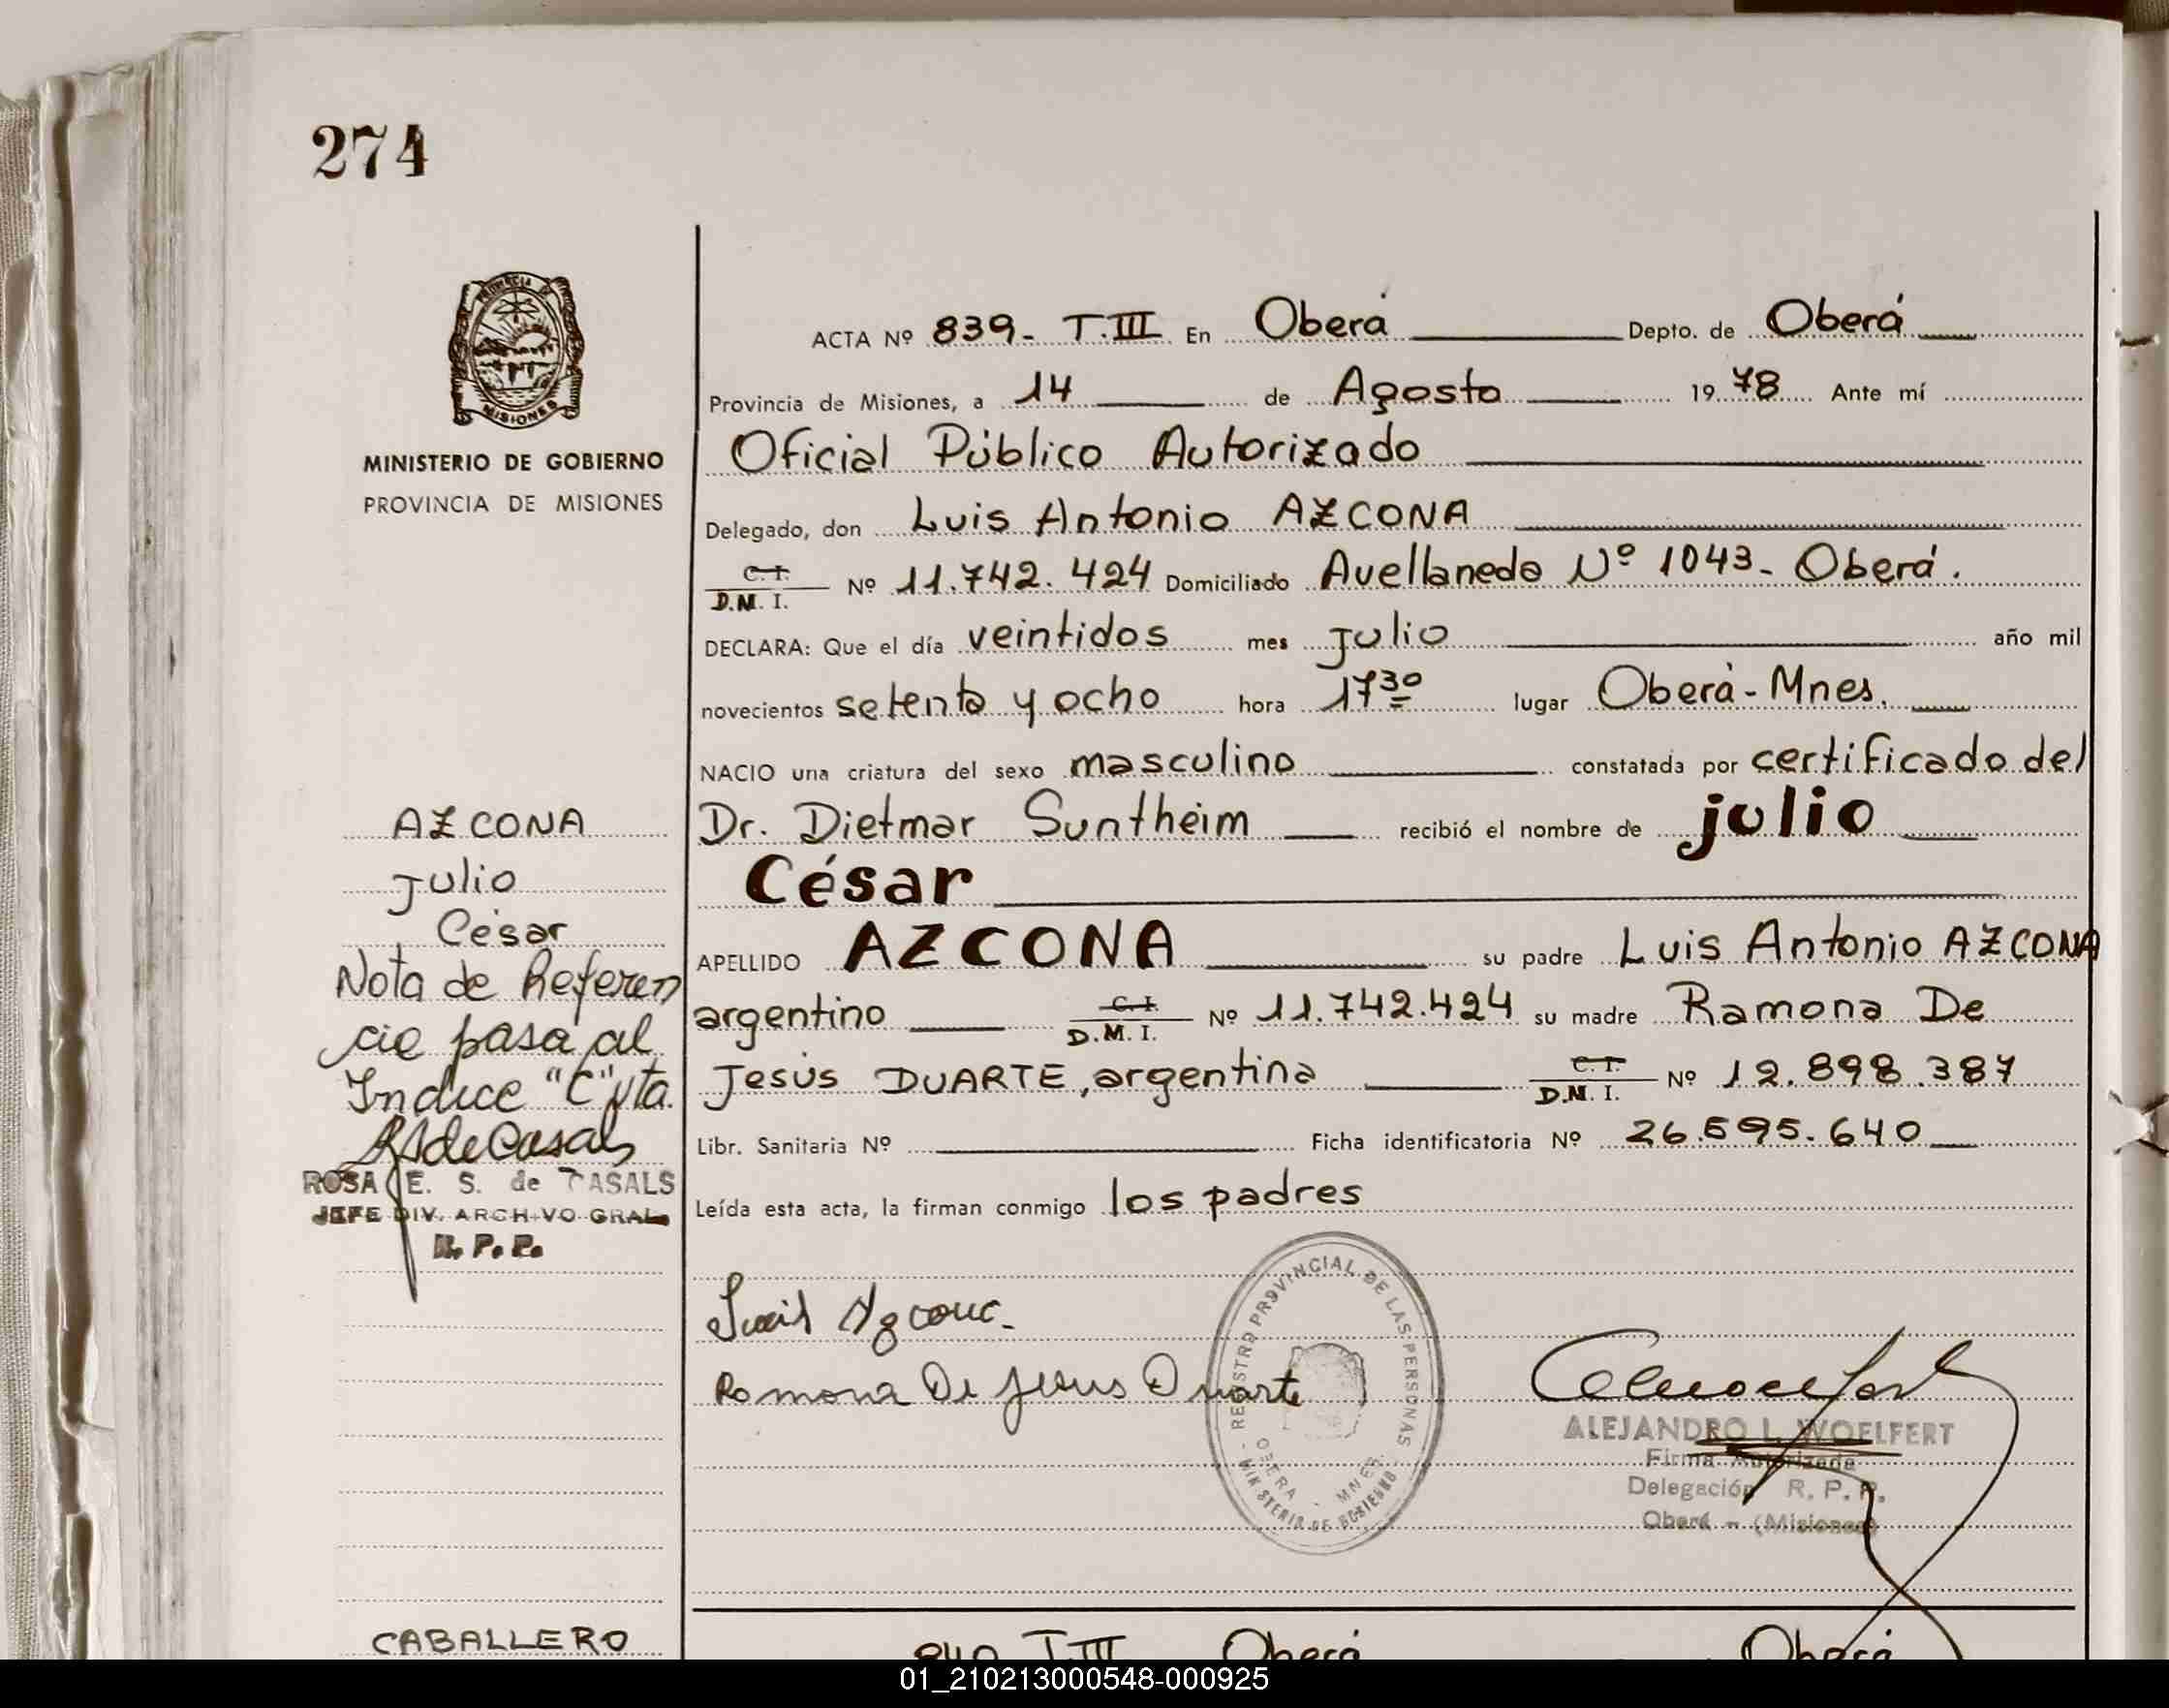 274
PROVINCIA DE
MISIONES
MINISTERIO DE GOBIERNO
PROVINCIA DE MISIONES
ACTA Nº 839- T.III En Oberá Depto. de Oberá
Provincia de Misiones, a 14 de Agosto 1978 Ante mí
Oficial Público Autorizado
Delegado, don Luis Antonio AZCONA
C. I. D.M. I. Nº 11.742.424 Domiciliado Avellaneda Nº 1043- Oberá.
DECLARA: Que el día veintidos mes julio año mil
novecientos setenta y ocho hora 17 30 lugar Oberá-Mnes.
NACIO una criatura del sexo masculino constatada por certificado del
Dr. Dietmar Suntheim recibió el nombre de julio
César
APELLIDO AZCONA su padre Luis Antonio AZCONA
argentino C. I. D.M. I. Nº 11.742.424 su madre Ramona De
Jesús DUARTE, argentina C. I. D.M. I. Nº 12.898.387
Libr. Sanitaria Nº Ficha identificatoria Nº 26.595.640
Leída esta acta, la firman conmigo los padres
AZCONA
Julio
César
Nota de Referen
cia pasa al
Indice "C" vta.
RSdeCasals
ROSA E. S. de CASALS
JEFE DIV. ARCHIVO GRAL.
R. P. P.
Luis Azcona.
Ramona De Jesus Duarte
REGISTRO PROVINCIAL DE LAS PERSONAS
OBERA - MNES.
MINISTERIO DE GOBIERNO
ALEJANDRO L. WOELFERT
Firma Autorizada
Delegación R. P. P.
Oberá - (Misiones)
CABALLERO
840 T.III Oberá Oberá
01_210213000548-000925